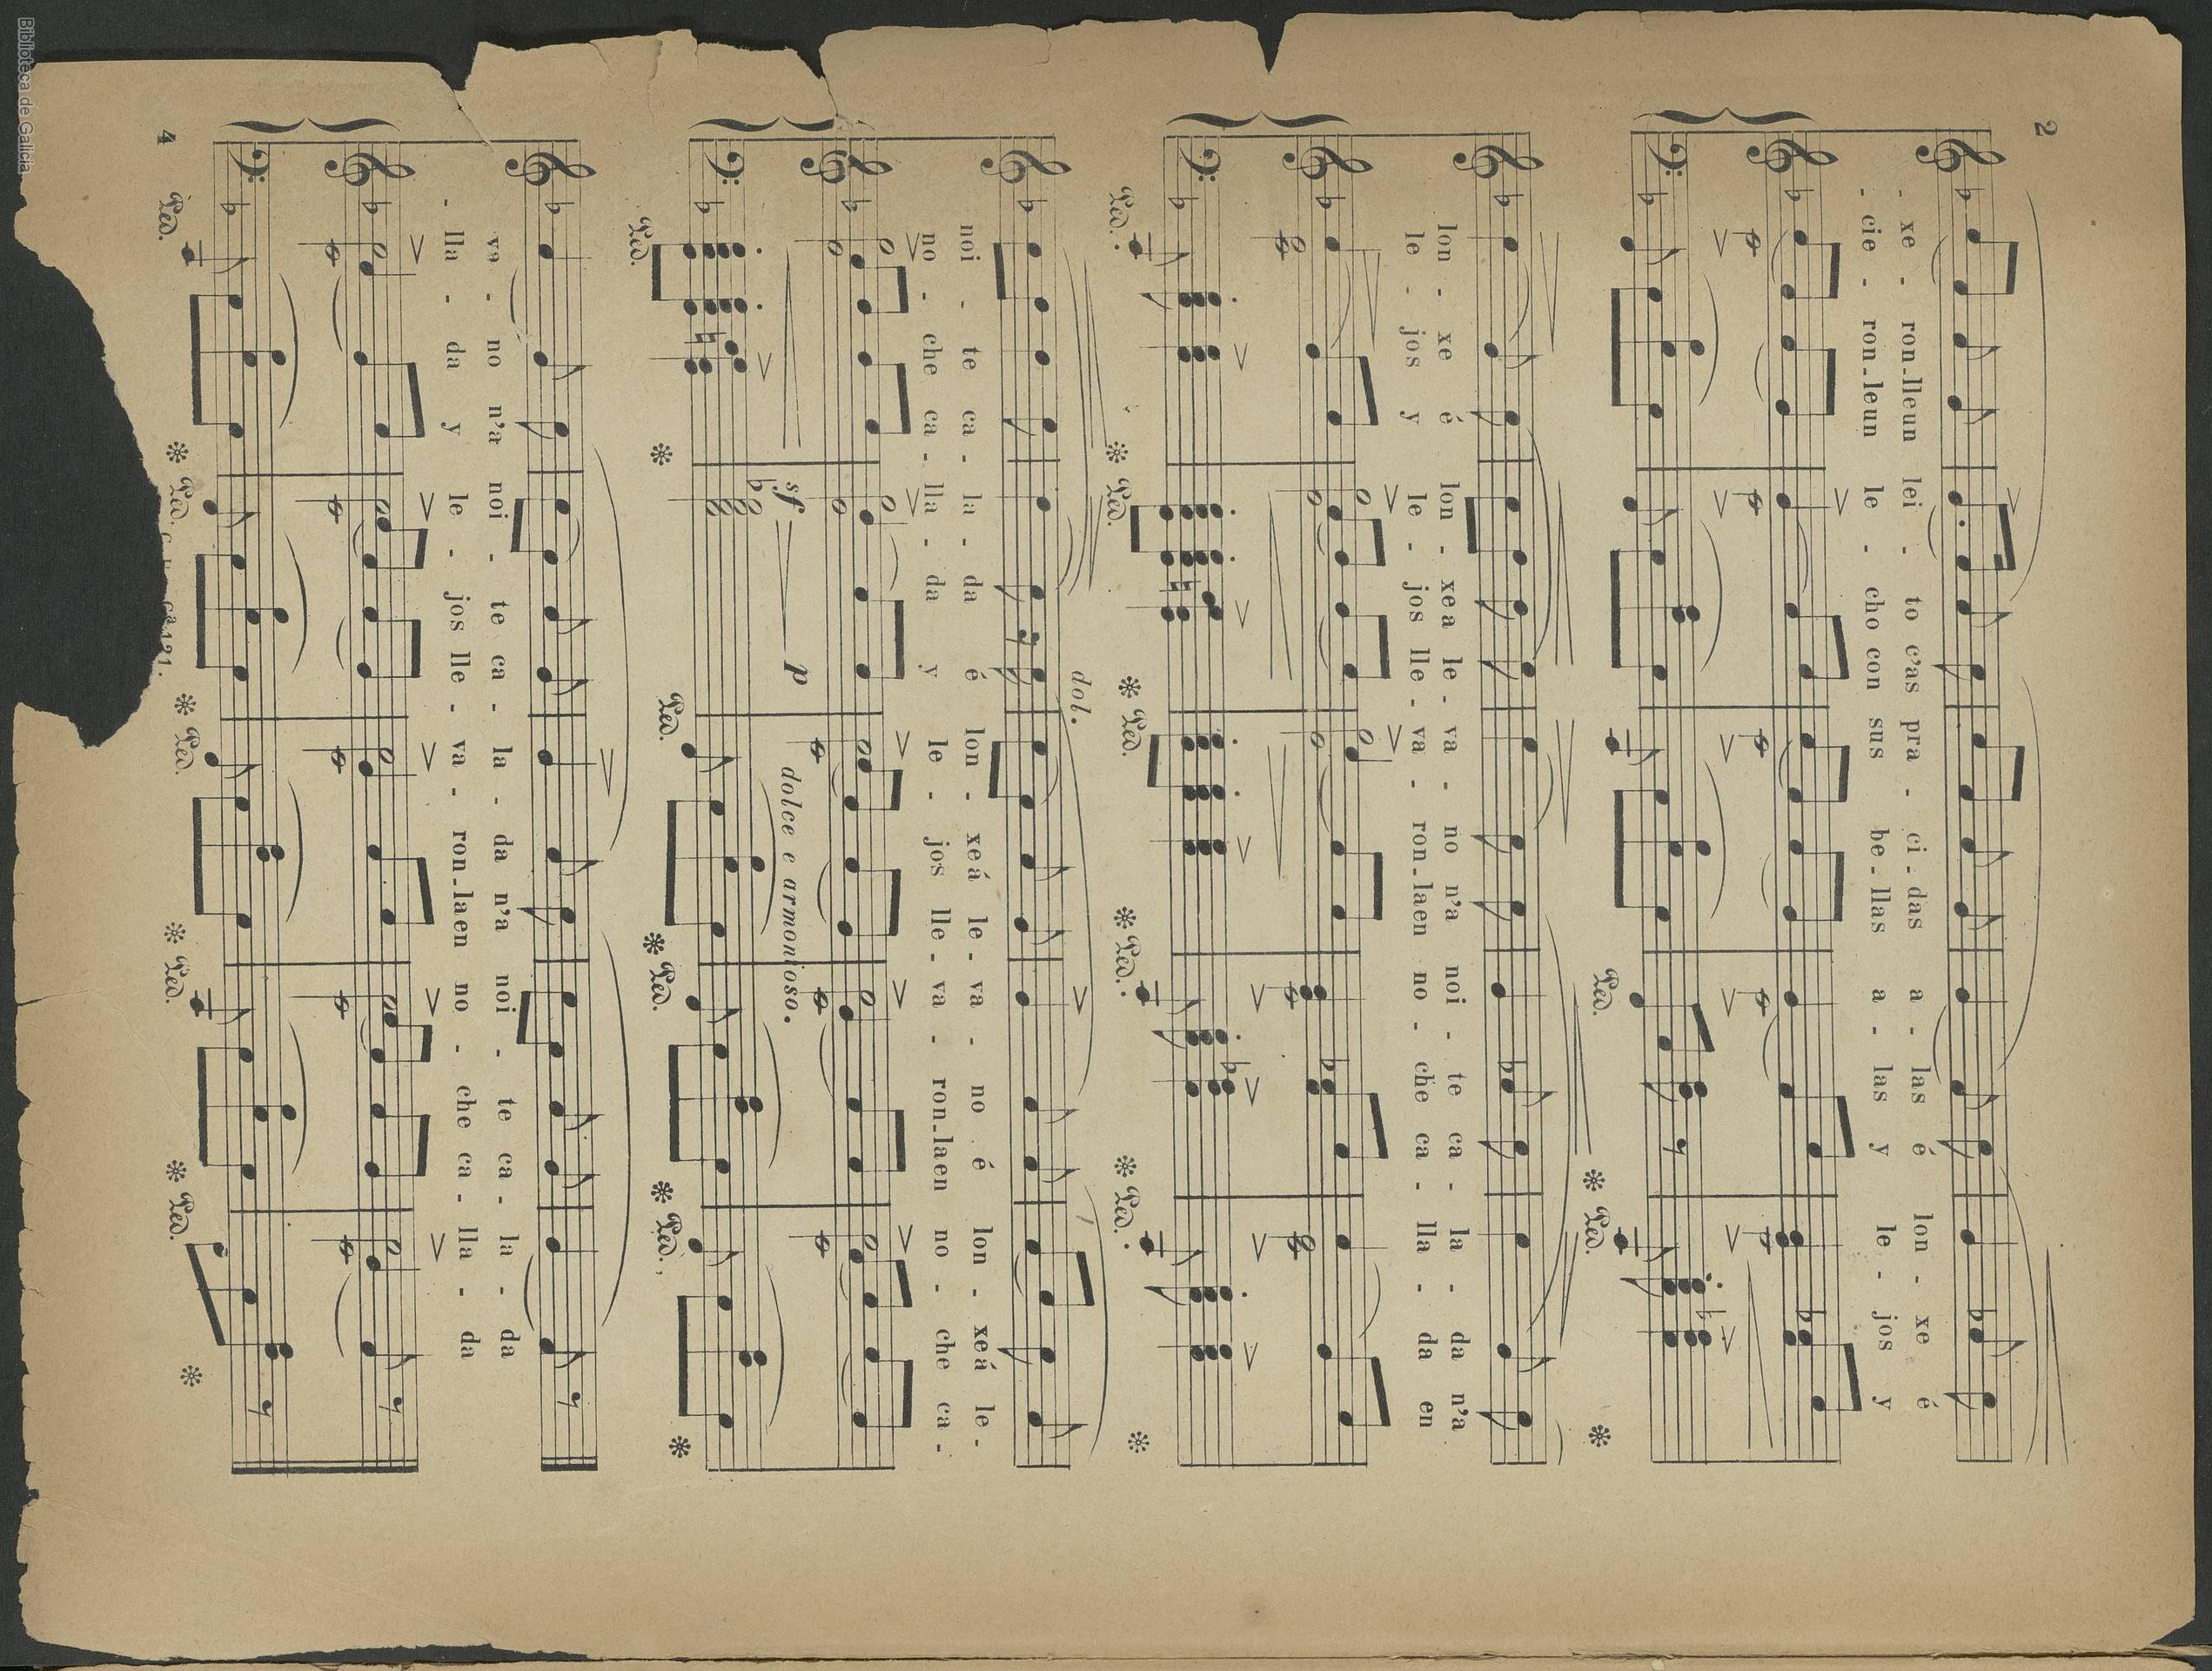 2
- xe - ron-lleun lei - to c'as pra - ci-das a - las é lon - xe é
- cie - ron-leun le - cho con sus be-llas a - las y le - jos y
Ped. * Ped. *
lon - xe é lon - xea le - va - no n'a noi - te ca - la - da n'a
le - jos y le - jos lle - va - ron-laen no - che ca - lla - da en
Ped. * Ped. * Ped. * Ped. * Ped. *
dol.
noi - te ca - la - da é lon - xeá le - va - no é lon - xeá le -
no - che ca - lla - da y le - jos lle - va - ron-laen no - che ca -
sf p dolce e armonioso.
Ped. * Ped. * Ped. * Ped. *
va - no n'a noi - te ca - la - da n'a noi - te ca - la - da
- lla - da y le - jos lle - va - ron-laen no - che ca - lla - da
Ped. * Ped. * Ped. * Ped. * Ped. *
4
Biblioteca de Galicia